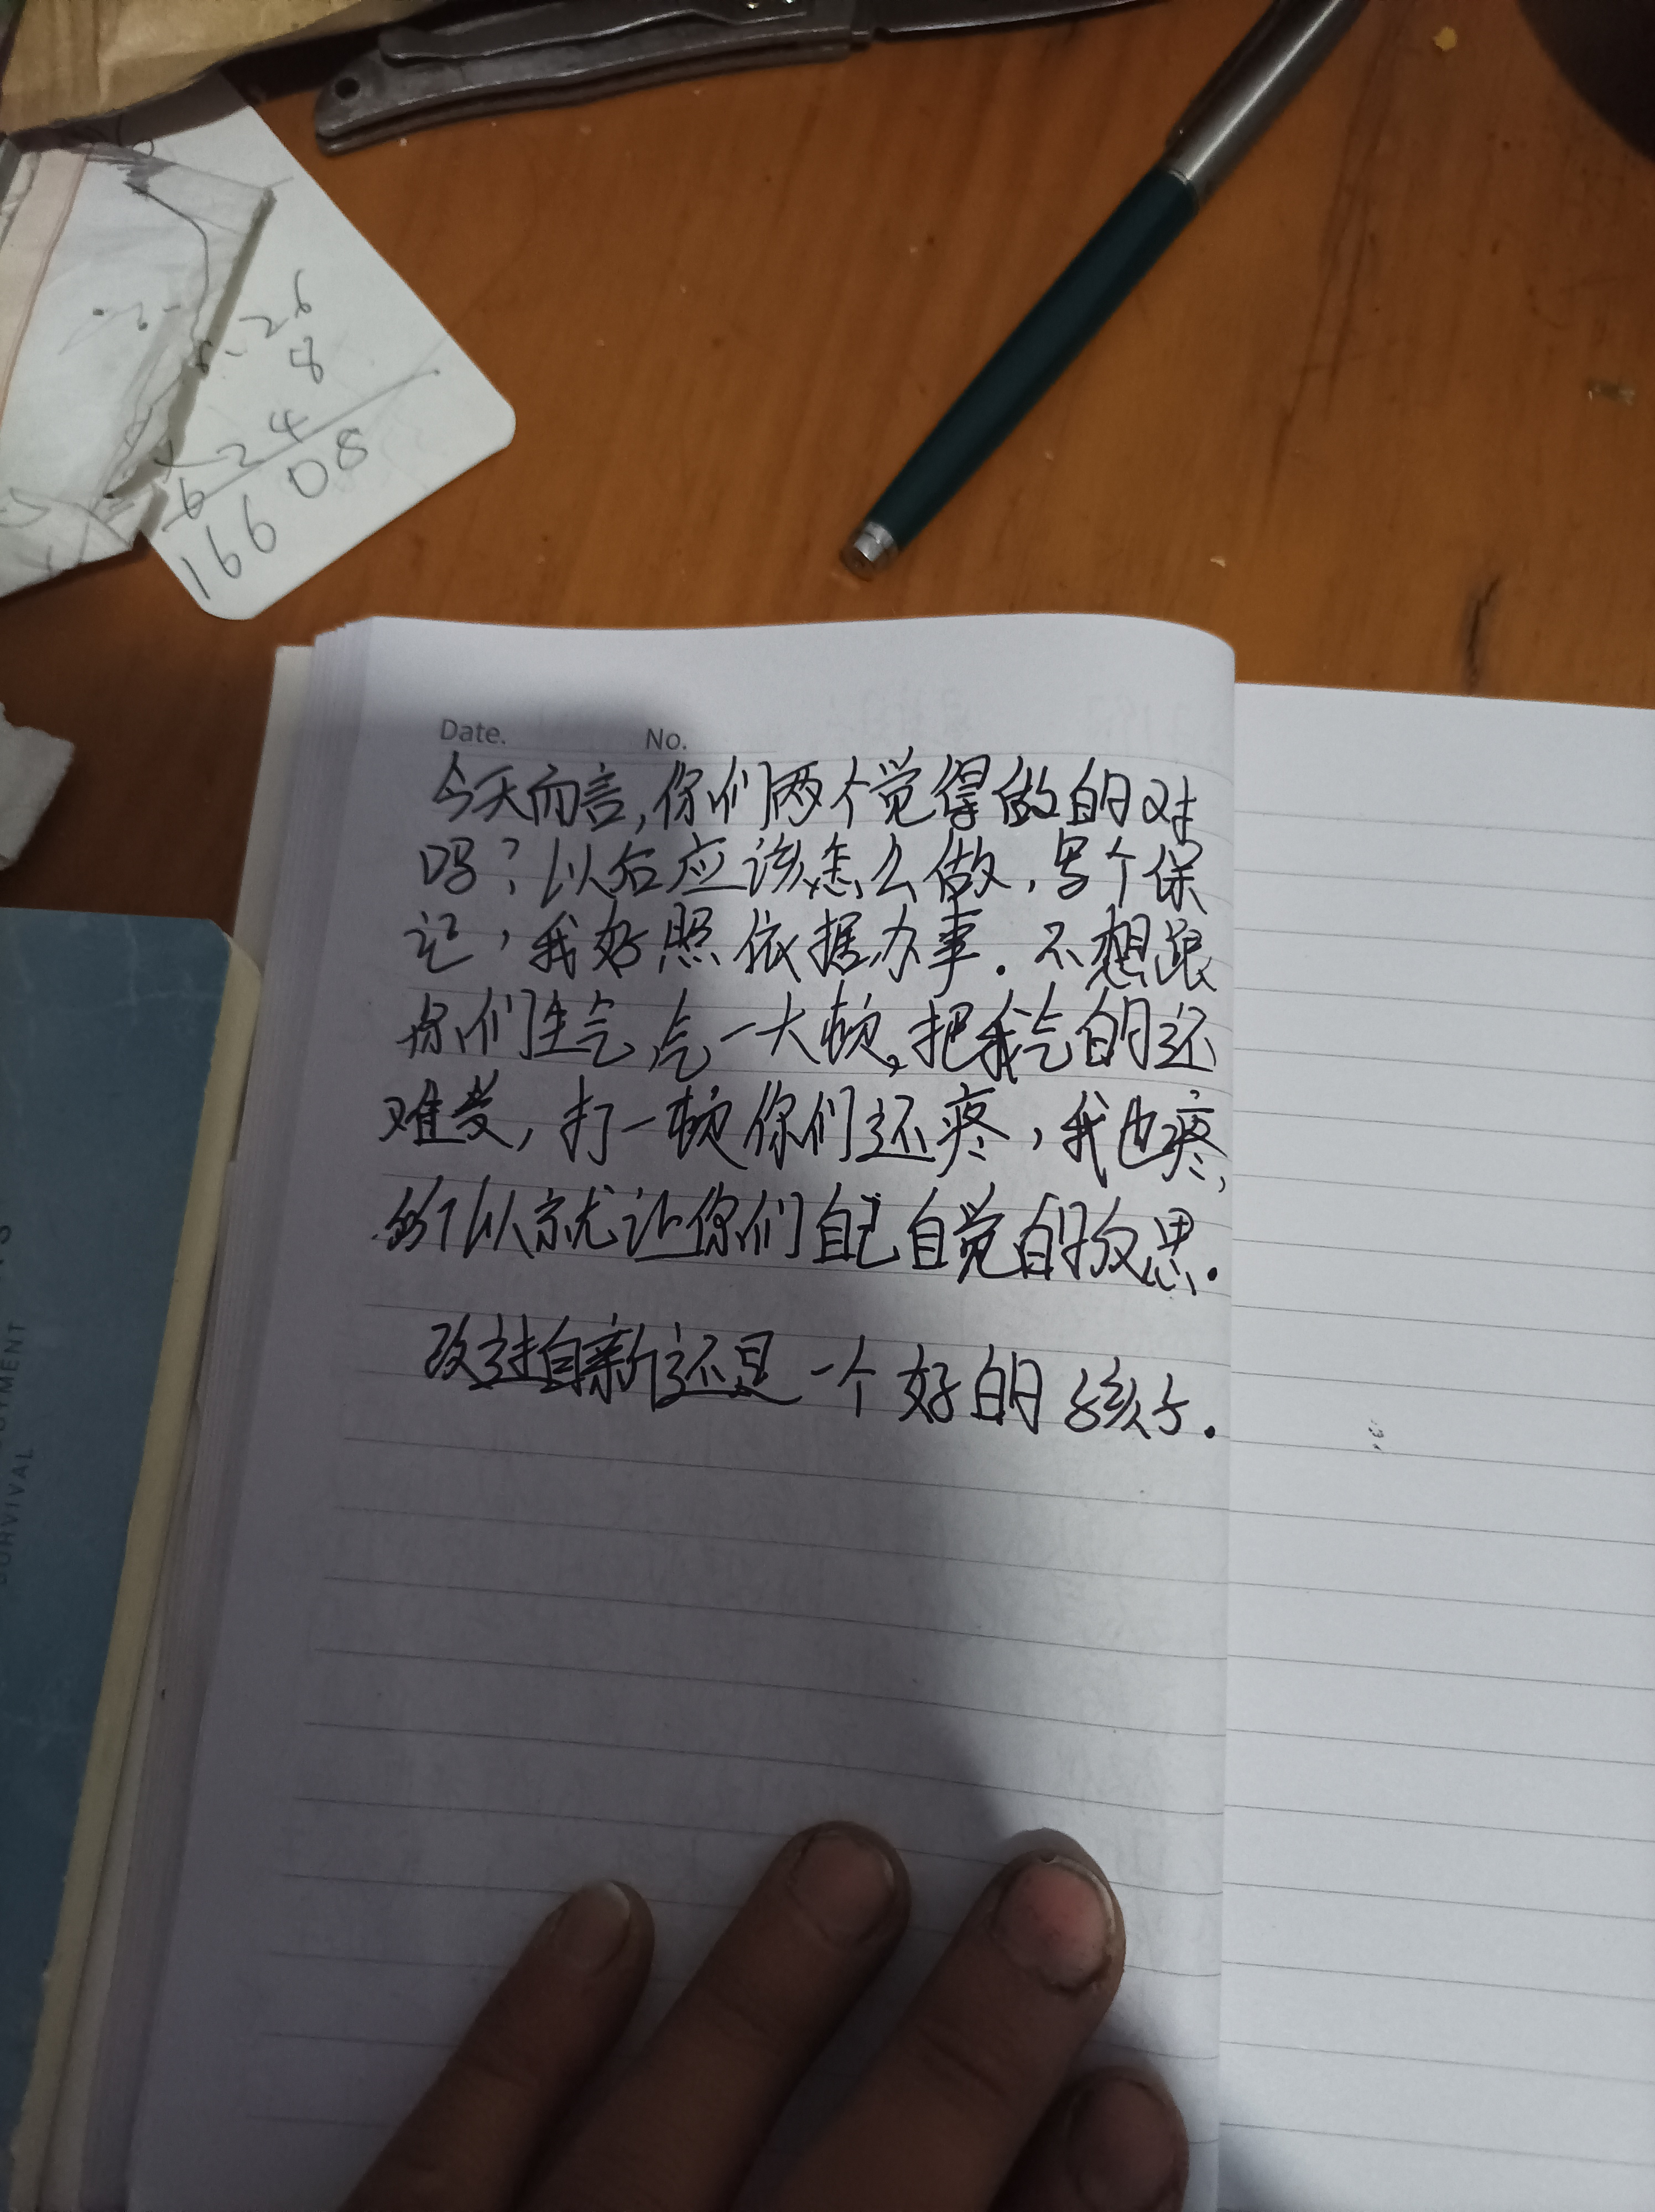 26
8
24
6
16608
Date. No.
今天而言,你们两个觉得做的对
吗?以后应该怎么做,写个保
记,我好照依据办事.不想跟
你们生气,气一大顿,把我气的还
难受,打一顿你们还疼,我也疼,
所以就让你们自己自觉的改思.
改过自新还是一个好的孩子.
SURVIVAL